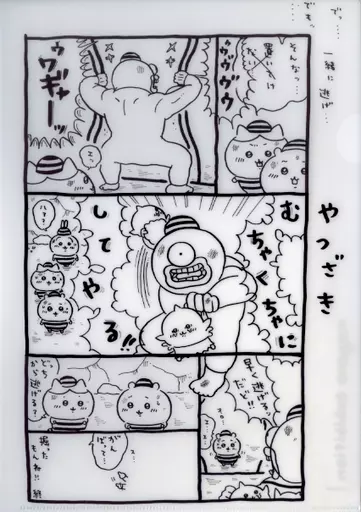 でっ…
ですッ
一緒に逃げ…
そんなっ…
置いてけ
ない…
ゥヴヴヴ
ゥワギャーッ
やつざき
むちゃくちゃに
してやる!!
ハァ?
早く逃げろッ
だど!!
どっち
から逃げる?
掘った
もんね!!
がん
ばって…